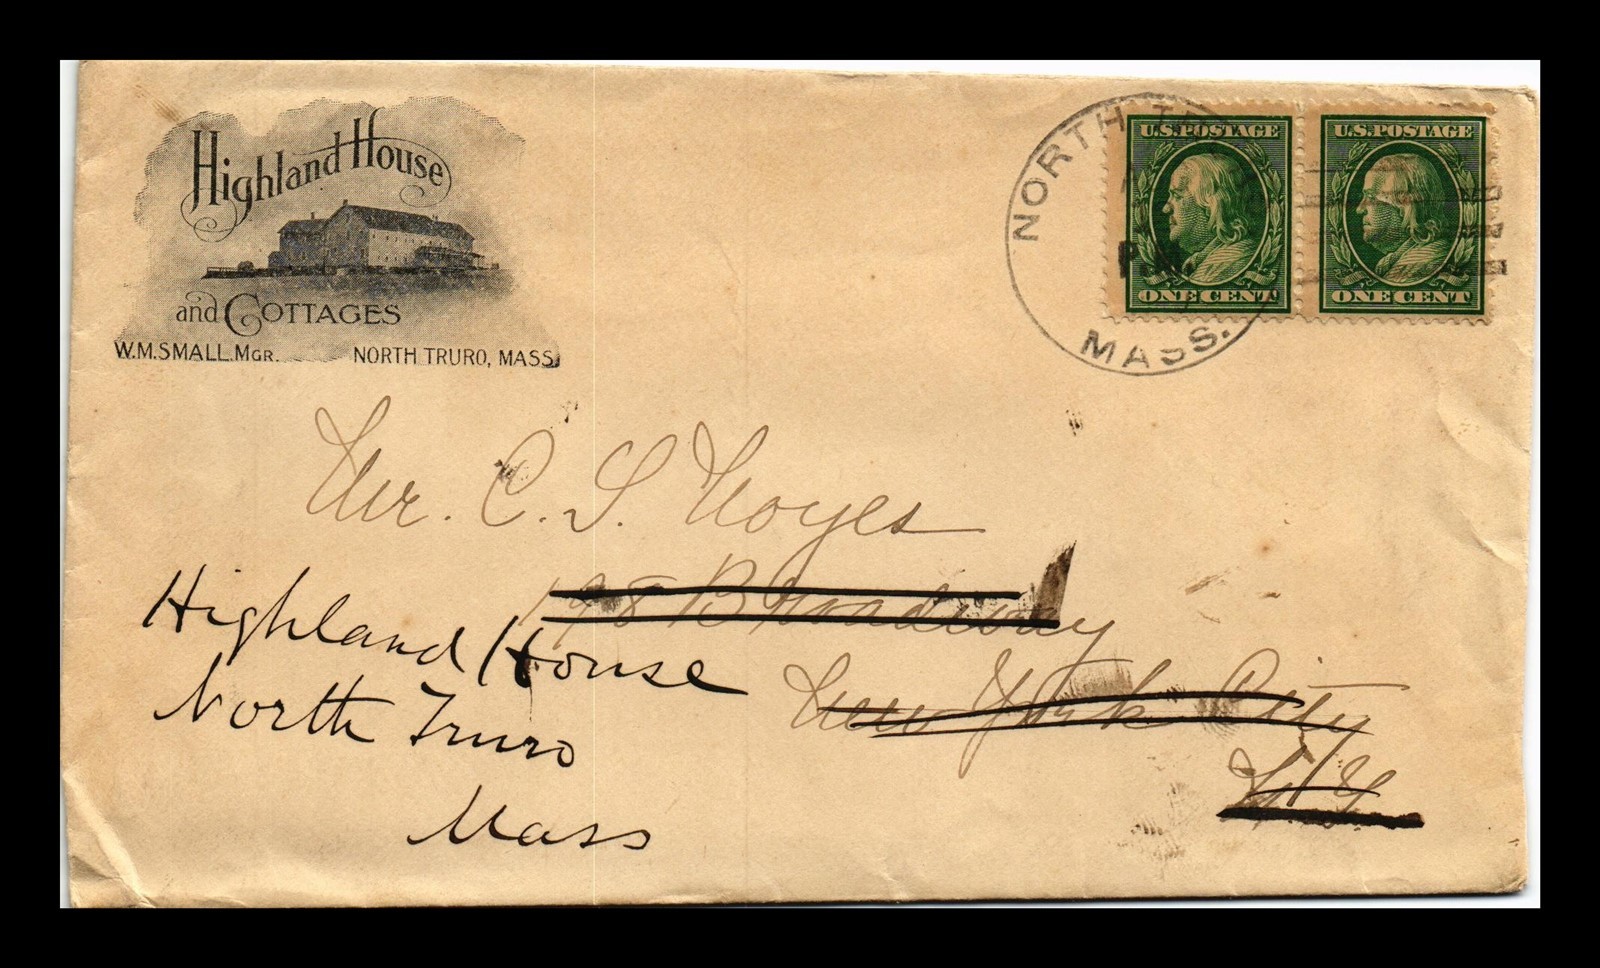 Highland House
and COTTAGES
W.M.SMALL.MGR. NORTH TRURO, MASS.
NORTH
P.M.
MASS.
U.S. POSTAGE
ONE CENT
U.S. POSTAGE
ONE CENT
Mr. C. S. Noyes
198 Broadway
New York City
N.Y.
Highland House
North Truro
Mass